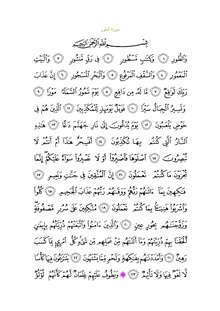 سورة الطور
بِسْمِ اللَّهِ الرَّحْمَٰنِ الرَّحِيمِ
وَالطُّورِ ١ وَكِتَٰبٍ مَّسْطُورٍ ٢ فِي رَقٍّ مَّنشُورٍ ٣ وَالْبَيْتِ
الْمَعْمُورِ ٤ وَالسَّقْفِ الْمَرْفُوعِ ٥ وَالْبَحْرِ الْمَسْجُورِ ٦ إِنَّ عَذَابَ
رَبِّكَ لَوَٰقِعٌ ٧ مَّا لَهُ مِن دَافِعٍ ٨ يَوْمَ تَمُورُ السَّمَاءُ مَوْرًا ٩
وَتَسِيرُ الْجِبَالُ سَيْرًا ١٠ فَوَيْلٌ يَوْمَئِذٍ لِّلْمُكَذِّبِينَ ١١ الَّذِينَ هُمْ فِي
خَوْضٍ يَلْعَبُونَ ١٢ يَوْمَ يُدَعُّونَ إِلَىٰ نَارِ جَهَنَّمَ دَعًّا ١٣ هَٰذِهِ
النَّارُ الَّتِي كُنتُم بِهَا تُكَذِّبُونَ ١٤ أَفَسِحْرٌ هَٰذَا أَمْ أَنتُمْ لَا
تُبْصِرُونَ ١٥ اصْلَوْهَا فَاصْبِرُوا أَوْ لَا تَصْبِرُوا سَوَاءٌ عَلَيْكُمْ إِنَّمَا
تُجْزَوْنَ مَا كُنتُمْ تَعْمَلُونَ ١٦ إِنَّ الْمُتَّقِينَ فِي جَنَّٰتٍ وَنَعِيمٍ ١٧
فَٰكِهِينَ بِمَا ءَاتَىٰهُمْ رَبُّهُمْ وَوَقَىٰهُمْ رَبُّهُمْ عَذَابَ الْجَحِيمِ ١٨ كُلُوا
وَاشْرَبُوا هَنِيئًا بِمَا كُنتُمْ تَعْمَلُونَ ١٩ مُتَّكِئِينَ عَلَىٰ سُرُرٍ مَّصْفُوفَةٍ
وَزَوَّجْنَٰهُم بِحُورٍ عِينٍ ٢٠ وَالَّذِينَ ءَامَنُوا وَاتَّبَعَتْهُمْ ذُرِّيَّتُهُم بِإِيمَٰنٍ
أَلْحَقْنَا بِهِمْ ذُرِّيَّتَهُمْ وَمَا أَلَتْنَٰهُم مِّنْ عَمَلِهِم مِّن شَيْءٍ كُلُّ امْرِئٍ بِمَا كَسَبَ
رَهِينٌ ٢١ وَأَمْدَدْنَٰهُم بِفَٰكِهَةٍ وَلَحْمٍ مِّمَّا يَشْتَهُونَ ٢٢ يَتَنَٰزَعُونَ فِيهَا كَأْسًا
لَّا لَغْوٌ فِيهَا وَلَا تَأْثِيمٌ ٢٣ وَيَطُوفُ عَلَيْهِمْ غِلْمَانٌ لَّهُمْ كَأَنَّهُمْ لُؤْلُؤٌ